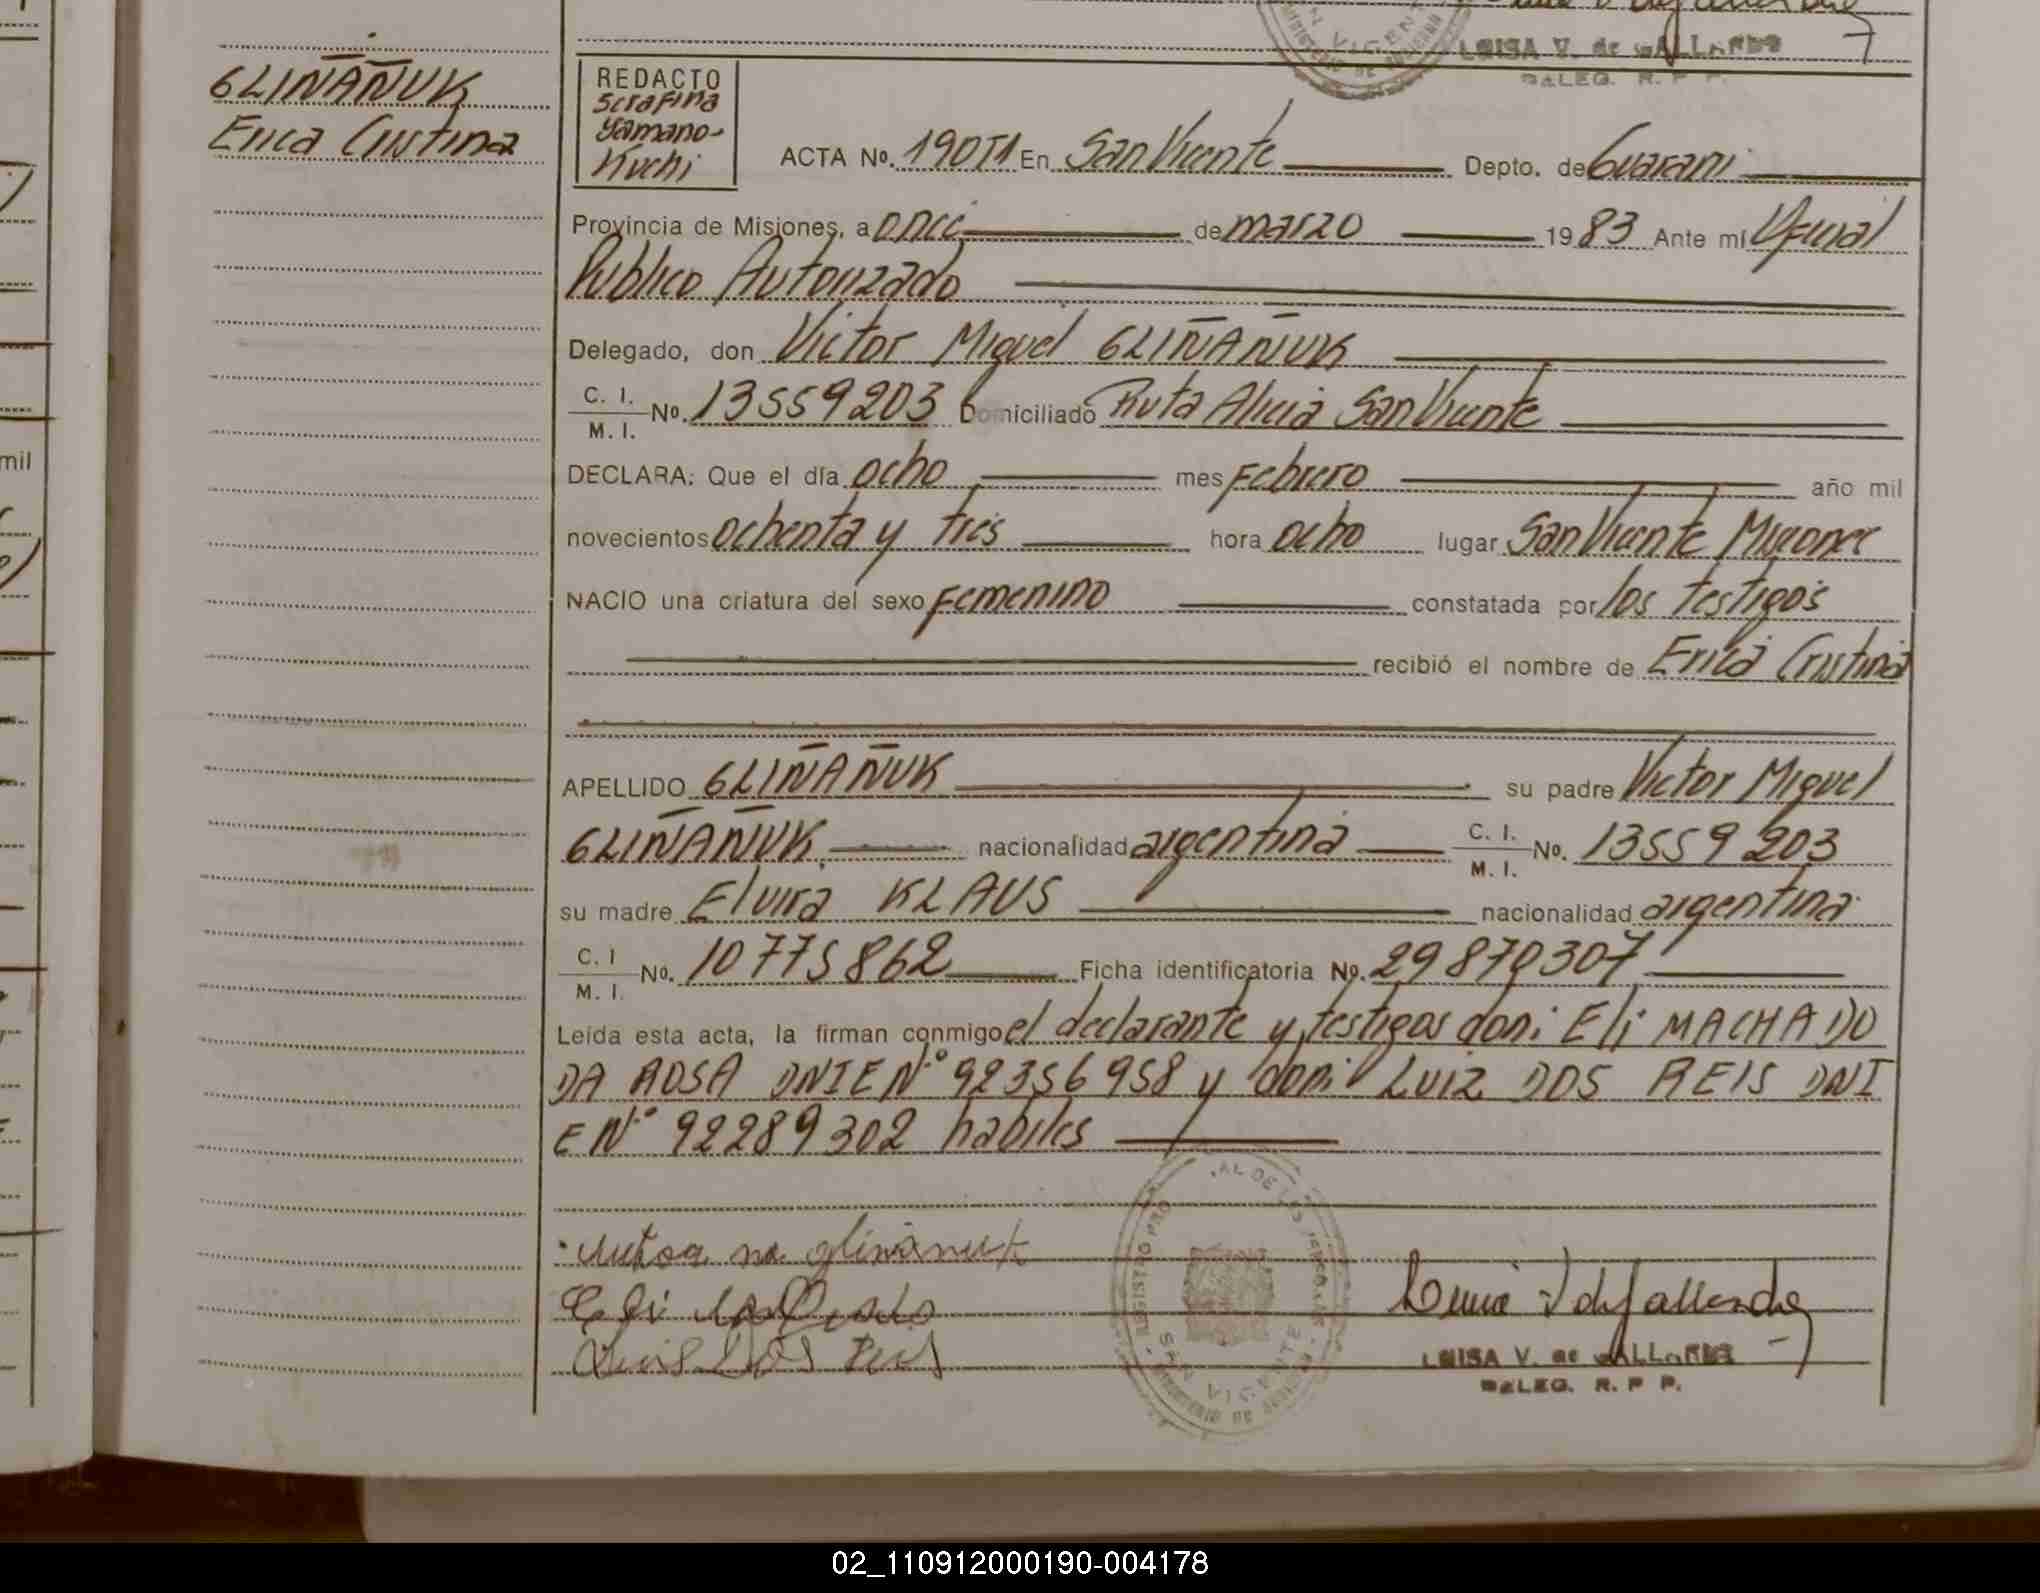 GLIÑAÑUK
Erica Cristina
LUISA V. de GALLARDO
DELEG. R. P. P.
REDACTO
Serafina
Yamano-
Kuchi
ACTA No. 190T1 En San Vicente Depto. de Guarani
Provincia de Misiones, a once de marzo 1983 Ante mí Oficial
Publico Autorizado
Delegado, don Victor Miguel GLIÑAÑUK
C. I. / M. I. No. 13559203 Domiciliado Ruta Alicia San Vicente
DECLARA: Que el día ocho mes Febrero año mil
novecientos ochenta y tres hora ocho lugar San Vicente Misiones
NACIO una criatura del sexo Femenino constatada por los testigos
recibió el nombre de Erica Cristina
APELLIDO GLIÑAÑUK su padre Victor Miguel
GLIÑAÑUK nacionalidad argentina C. I. / M. I. No. 13559203
su madre Elvira KLAUS nacionalidad argentina
C. I / M. I. No. 10775862 Ficha identificatoria No. 29870307
Leída esta acta, la firman conmigo el declarante y testigos don: Eli MACHADO
DA ROSA DNIE Nº 92356958 y don: LUIZ DOS REIS DNI
E Nº 92289302 habiles
REGISTRO PRO AL DE LAS PERSONAS
SAN VICENTE
MINISTERIO DE GOBIERNO
LUISA V. de GALLARDO
DELEG. R. P P.
02_110912000190-004178